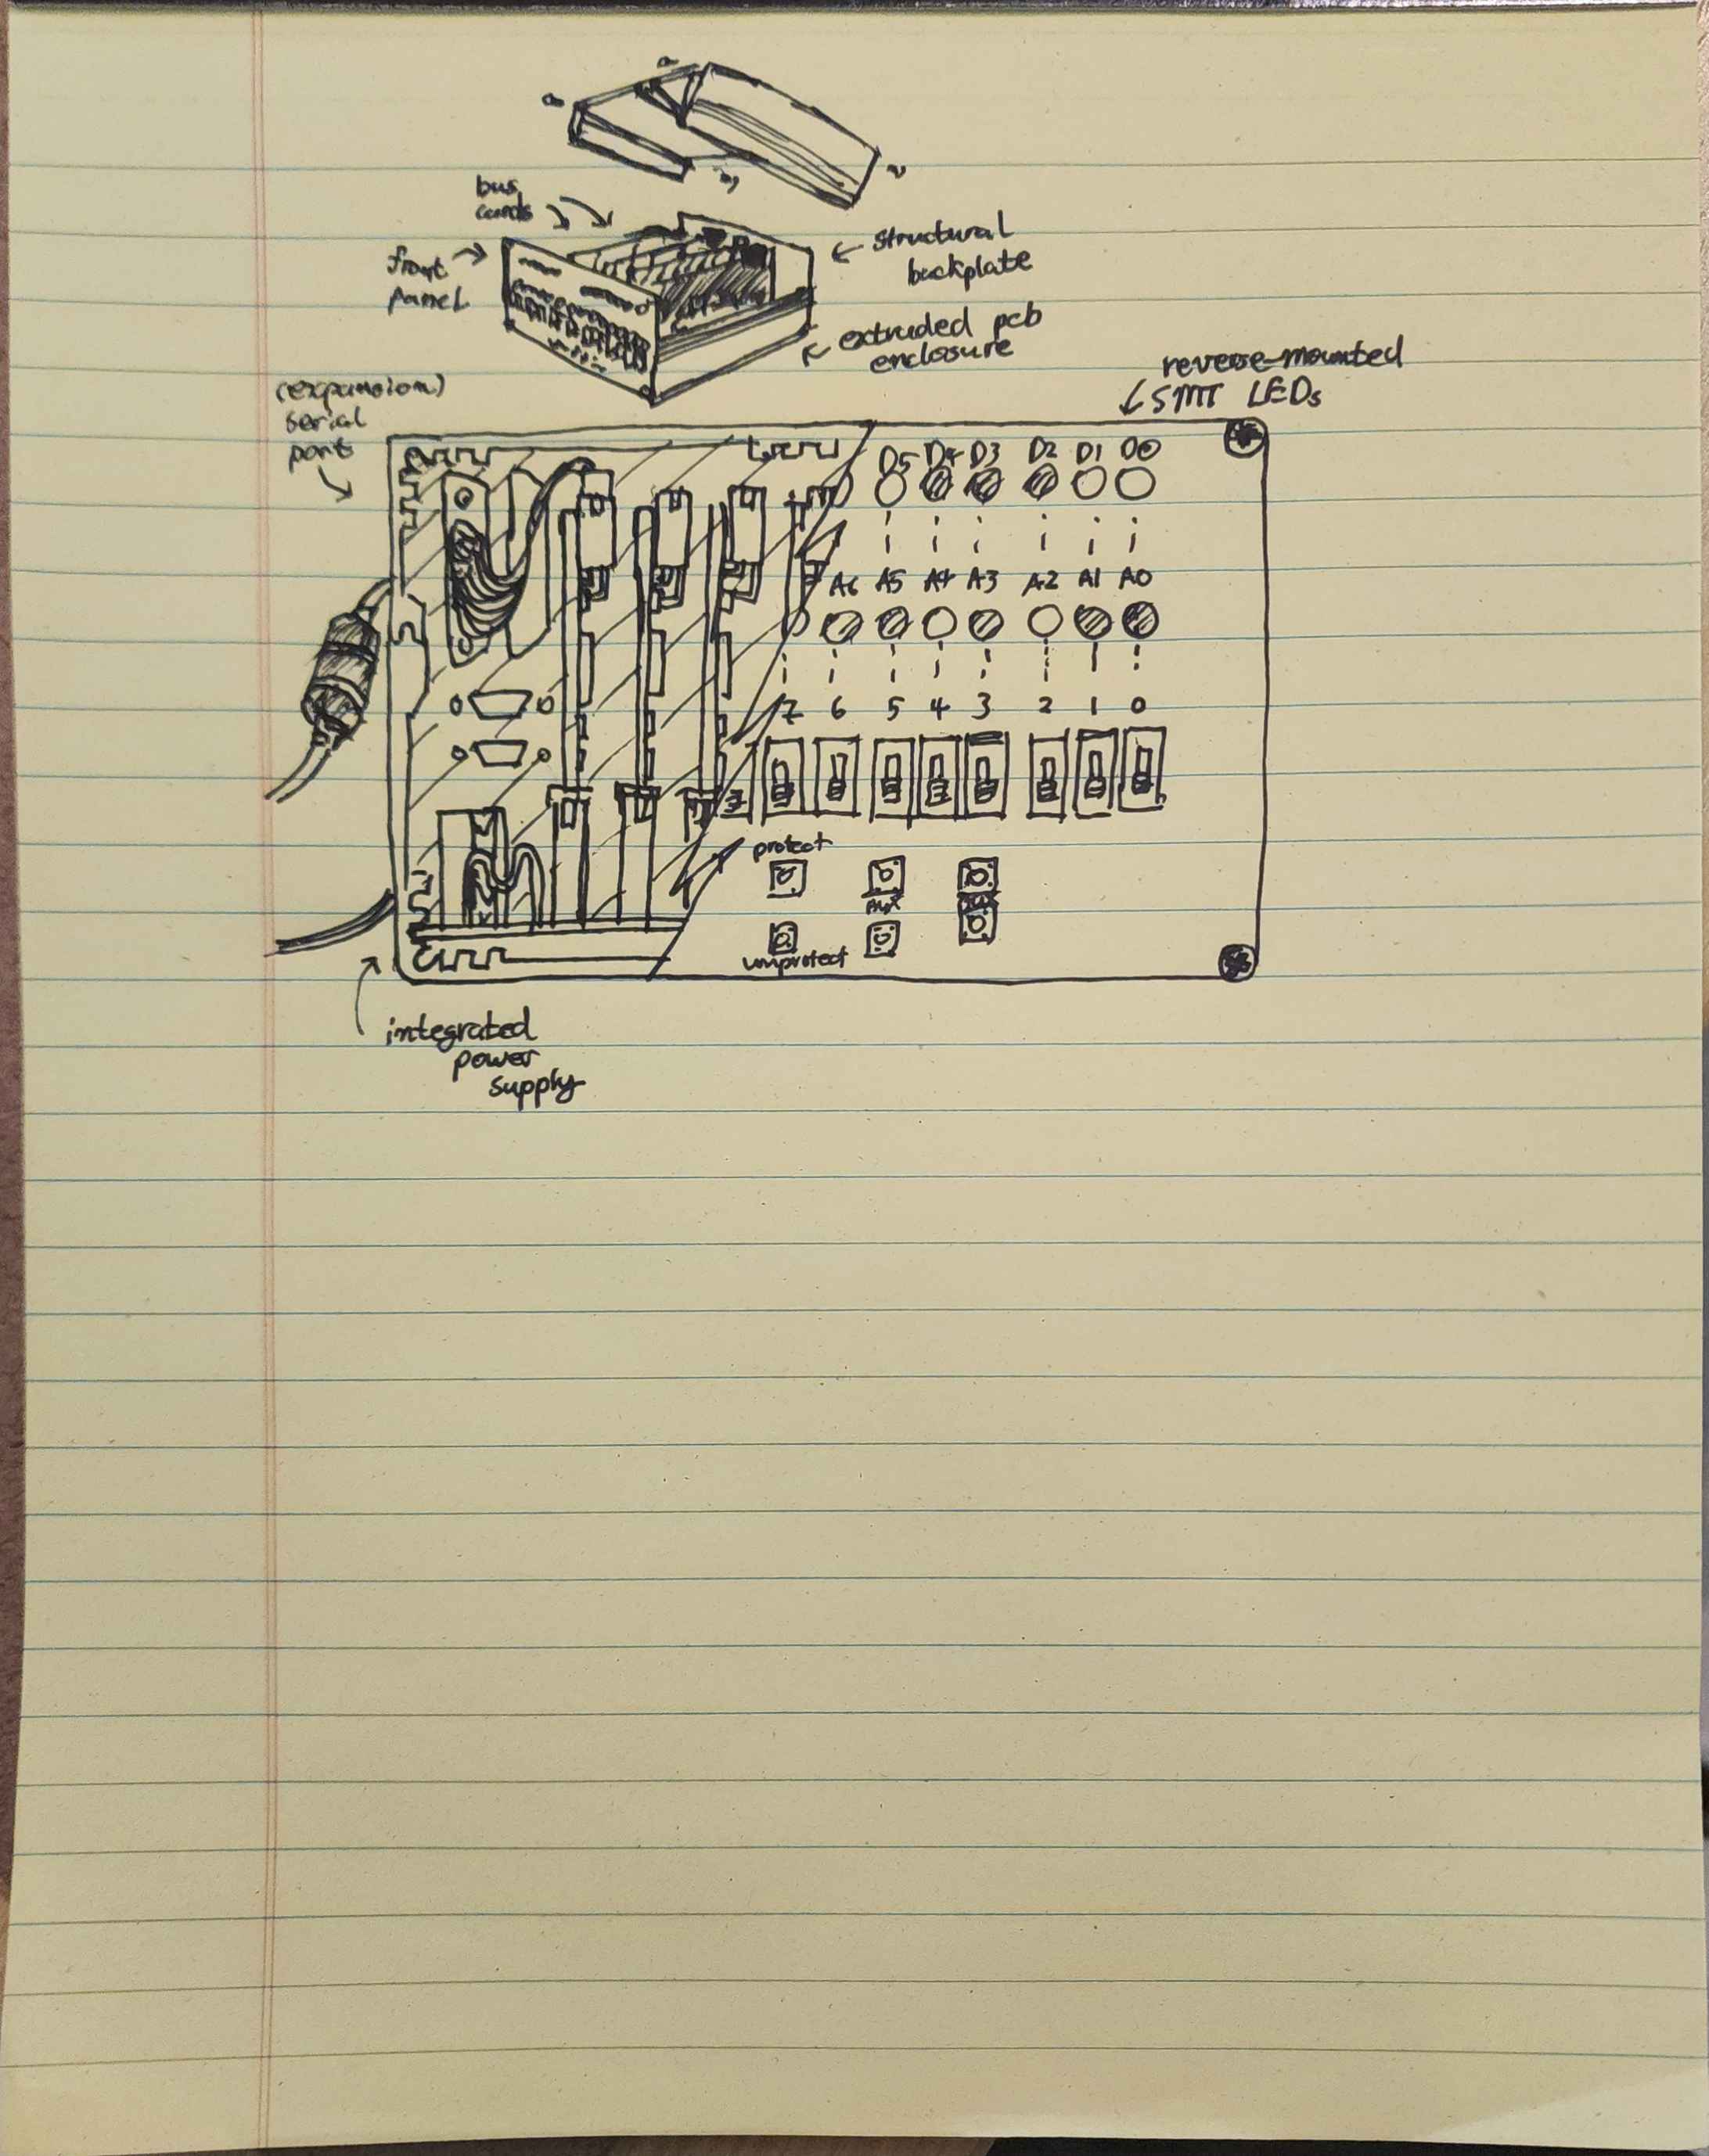 bus
cards
front
panel
structural
backplate
extruded pcb
enclosure
(expansion)
serial
port
reverse-mounted
SMT LEDs
D5 D4 D3 D2 D1 D0
A6 A5 A4 A3 A2 A1 A0
7 6 5 4 3 2 1 0
protect
unprotect
integrated
power
supply